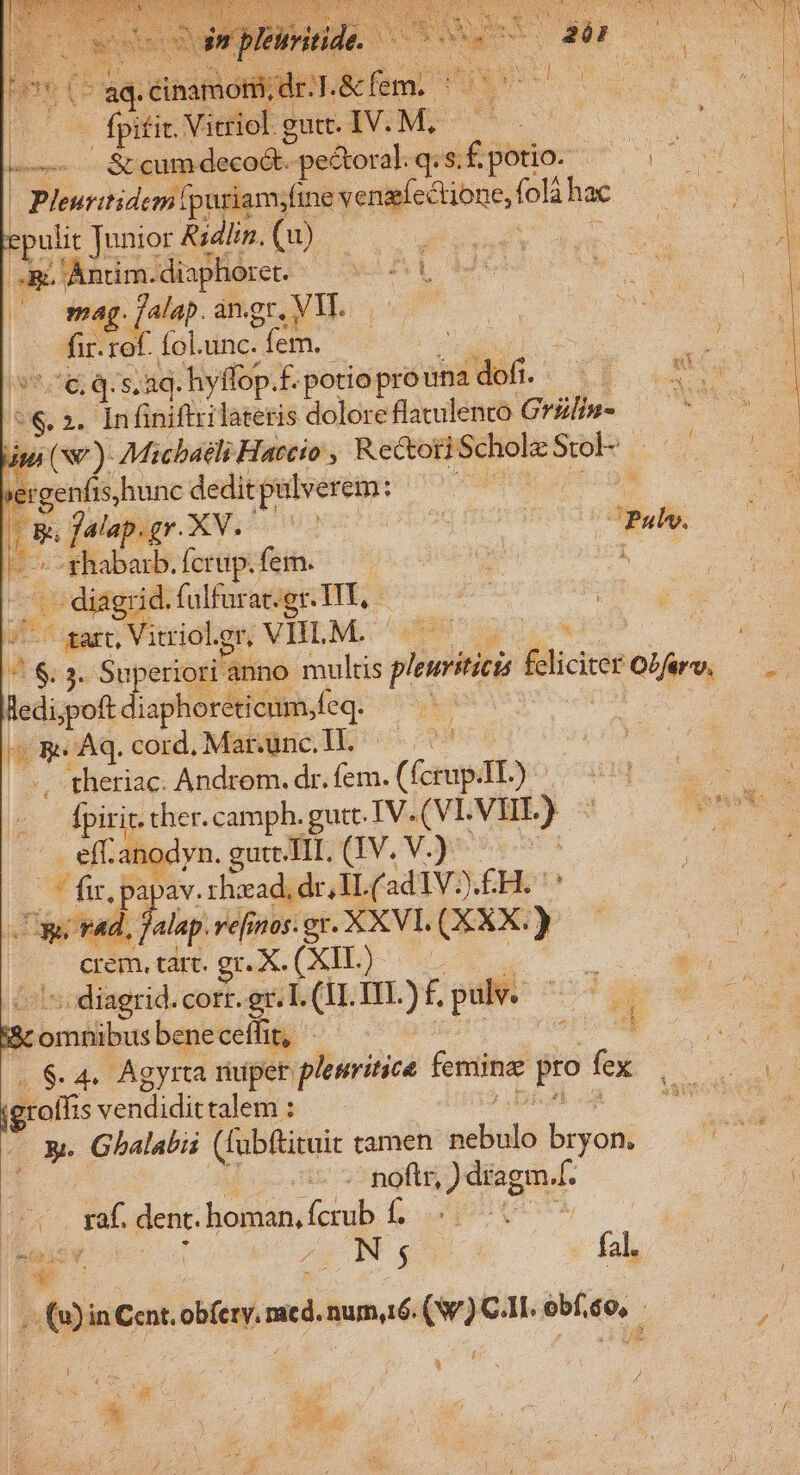 in pleuritide. 201
aq. cinamom, dr. I. & ſem.
ſpirit. Vitriol. gutt. IV. M,
& cum decoct. pectoral. q. s. f. potio.
Pleuritidem ſpuriam, ſine venæſectione, ſolâ hac
epulit Junior Ridlin. (u)
℞. Antim. diaphoret.
mag. Jalap. an. gr, VII.
ſir. roſ. ſol. unc. ſem.
c. q. s, aq. hyſſop. f. potio pro una doſi.
§. 2. In ſiniſtri lateris dolore flatulento Grüün-
(w) Michaëli Haccio, Rectori Scholæ Stol-
ergenſis, hunc dedit pulverem:
℞. Jalap. gr. XV. Pulv.
rhabarb. ſcrup. ſem.
diagrid. ſulfurat. gr. III,
tart, Vitriol. gr, VIII. M.
§. 3. Superiori anno multis pleuriticis feliciter Obſerv.
dedi, poſt diaphoreticum, ſeq.
℞. Aq. cord. Mat. unc. II.
theriac. Androm. dr. ſem. (ſcrup. II.)
ſpirit. ther. camph. gutt. IV. (VI. VIII.)
eſſ. anodyn. gutt. III. (IV. V.)
ſir. papav. rhæad, dr, II. (ad IV.) f. H.
℞. rad, Jalap. reſinos. gr. XXVI. (XXX.)
crem. tart. gr. X. (XII.)
diagrid. corr. gr. I. (II. III.) f. pulv.
& omnibus bene ceſſit,
§. 4. Agyrta nuper pleuriticæ feminæ pro ſex
groſſis vendidit talem:
℞. Ghalabii (ſubſtituit tamen nebulo bryon.
noſtr,) dragm. ſ.
raſ. dent. homan, ſcrub ſ.
N 5 ſal.
(u) in Cent. obſerv. med. num, 16. (w) C. II. obſ, 60,